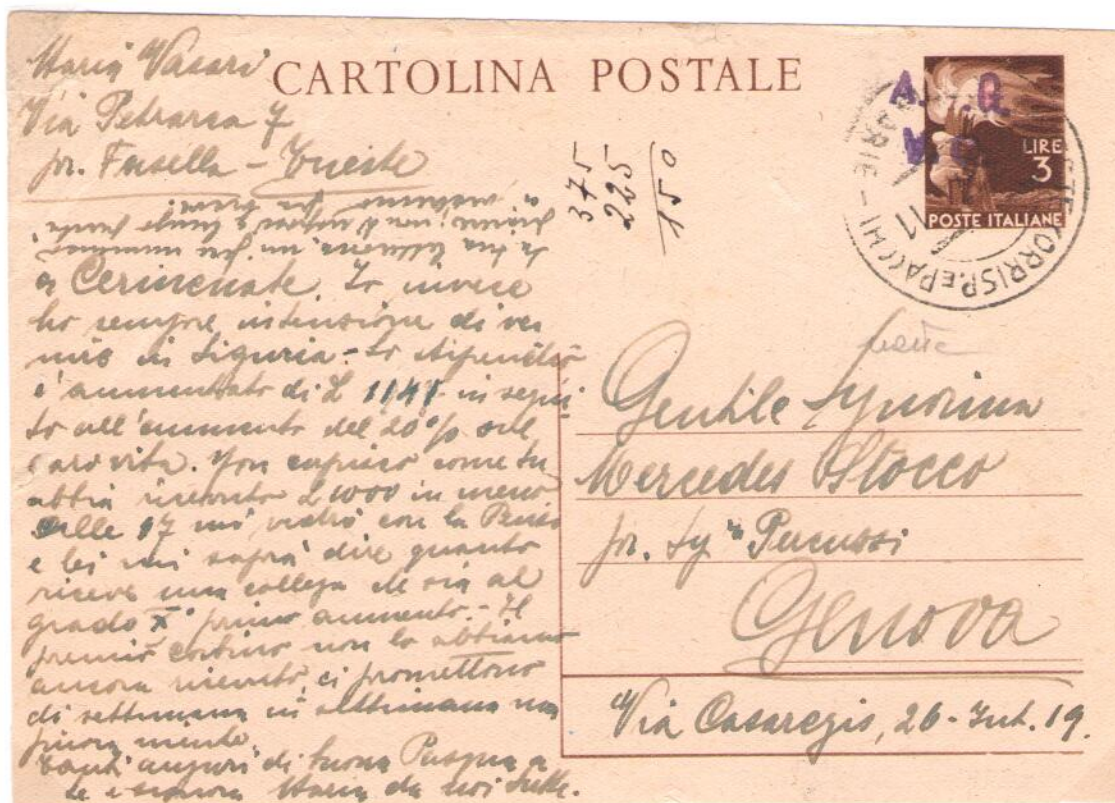 Maria Vasari
Via Petrarca 7
pr. Fasella - Trieste
CARTOLINA POSTALE
375
225
150
A. G.
LIRE
3
POSTE ITALIANE
CORRISP. E PACCHI
11
la tua
a Cermenate. Io invece
ho sempre intenzione di ve
nire in Liguria - Lo stipendio
è aumentato di L 1141 in segui
to all'aumento del 20% sul
caro vita. Non capisco come tu
abbia ricevuto L 1000 in meno
alle 17 mi vedrò con la
e lei mi saprà dire quanto
riceve una collega che sia al
grado X° primo aumento. - Il
premio non lo abbiamo
ancora ricevuto, ci promettono
di settimana in settimana ma
finora niente.
Tanti auguri di buona Pasqua a
te e signora Maria da noi tutte.
Gentile Signorina
Mercedes Stocco
pr. Sig.ra Pucussi
Genova
Via Casaregis, 26 - Int. 19.